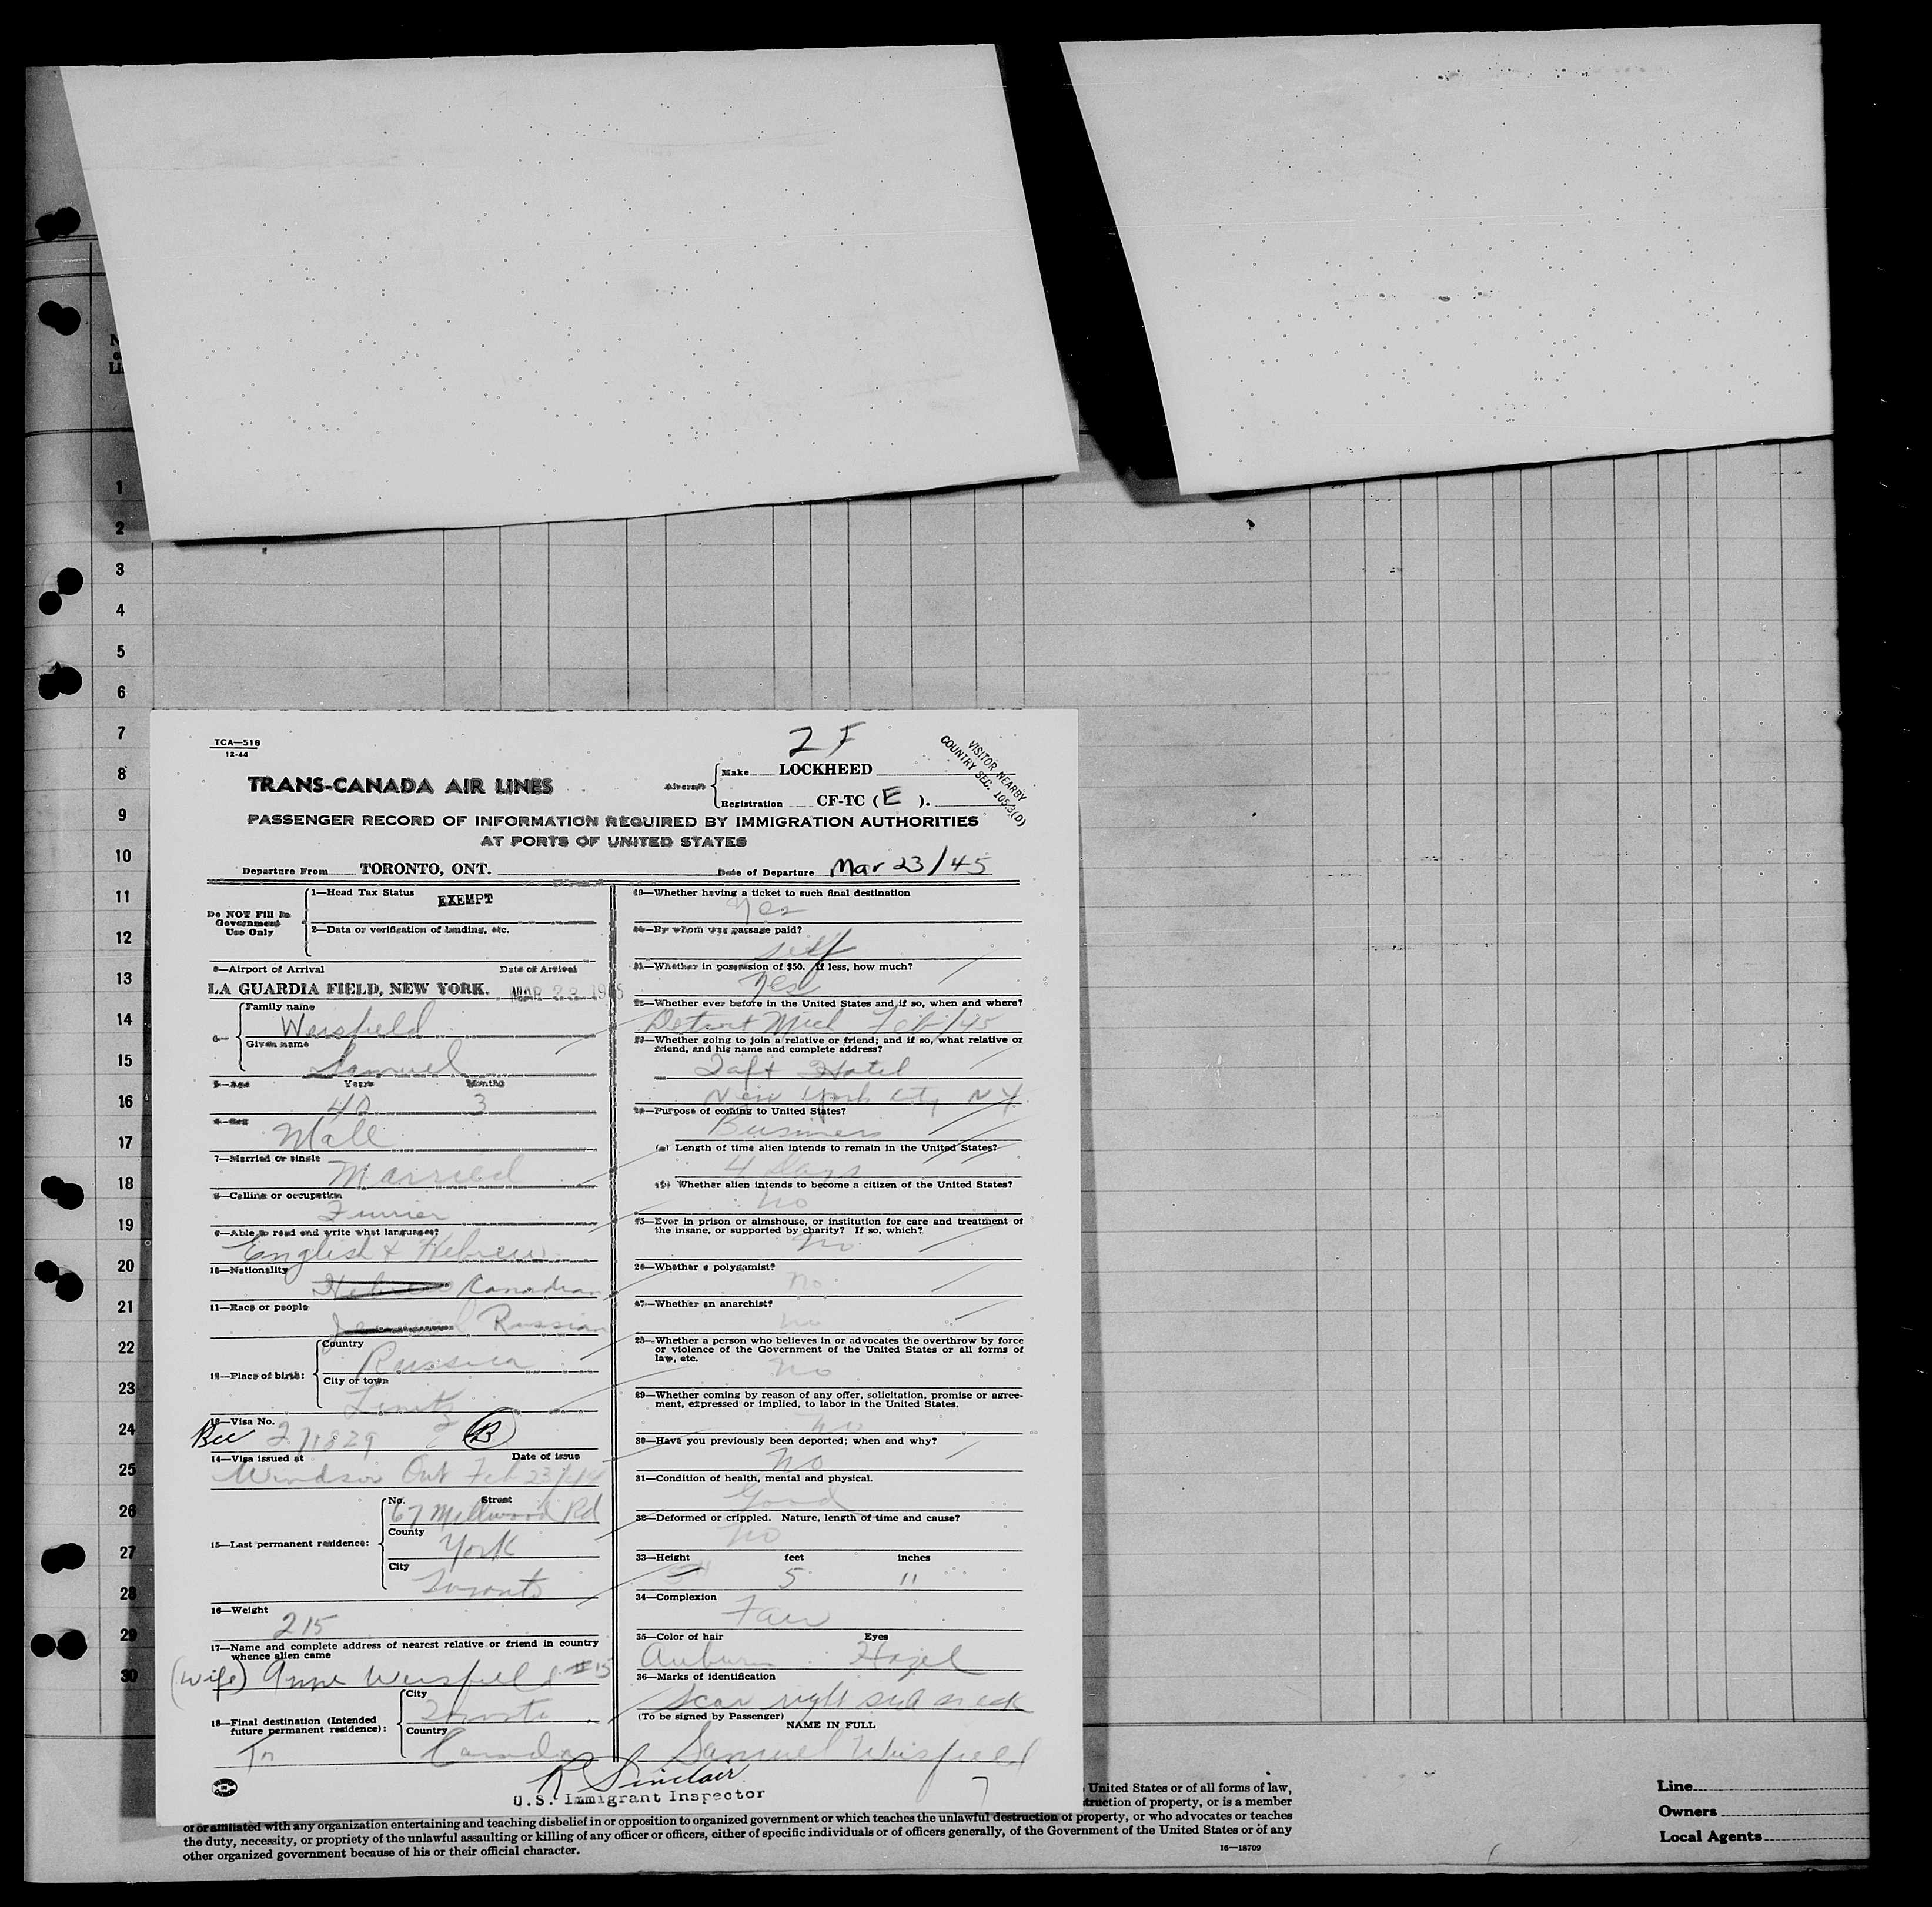 TCA—518
12-44
2 F
TRANS-CANADA AIR LINES
Aircraft
Make LOCKHEED
Registration CF-TC ( E ).
VISITOR NEARBY
COUNTRY SEC. 105.3(D)
PASSENGER RECORD OF INFORMATION REQUIRED BY IMMIGRATION AUTHORITIES
AT PORTS OF UNITED STATES
Departure From TORONTO, ONT. Date of Departure Mar 23/45
Do NOT Fill in
Government
Use Only
1—Head Tax Status
EXEMPT
2—Data or verification of landing, etc.
3—Airport of Arrival Date of Arrival
LA GUARDIA FIELD, NEW YORK. MAR 23 1945
Family name
Weisfield
Given name
Samuel
5—Age Years Months
42 3
6—Sex
Male
7—Married or single
Married
8—Calling or occupation
Furrier
9—Able to read and write what languages?
English & Hebrew
10—Nationality
Hebrew Canadian
11—Race or people
Russian
12—Place of birth:
Country
Russia
City or town
Linitz
13—Visa No.
271829 B
14—Visa issued at Date of issue
Windsor Ont Feb 23/44
15—Last permanent residence:
No. Street
67 Millwood Rd
County
York
City
Toronto
16—Weight
215
17—Name and complete address of nearest relative or friend in country
whence alien came
(wife) Anne Weisfield #15
18—Final destination (Intended
future permanent residence):
City
Toronto
Country
Canada
19—Whether having a ticket to such final destination
Yes
20—By whom was passage paid?
Self
21—Whether in possession of $50. If less, how much?
Yes
22—Whether ever before in the United States and if so, when and where?
Detroit Mich Feb/45
23—Whether going to join a relative or friend; and if so, what relative or
friend, and his name and complete address?
Taft Hotel
New York City NY
24—Purpose of coming to United States?
Business
(a) Length of time alien intends to remain in the United States?
4 Days
(b) Whether alien intends to become a citizen of the United States?
No
25—Ever in prison or almshouse, or institution for care and treatment of
the insane, or supported by charity? If so, which?
No
26—Whether a polygamist?
No
27—Whether an anarchist?
No
28—Whether a person who believes in or advocates the overthrow by force
or violence of the Government of the United States or all forms of
law, etc.
No
29—Whether coming by reason of any offer, solicitation, promise or agree-
ment, expressed or implied, to labor in the United States.
No
30—Have you previously been deported; when and why?
No
31—Condition of health, mental and physical.
Good
32—Deformed or crippled. Nature, length of time and cause?
No
33—Height feet inches
5 11
34—Complexion
Fair
35—Color of hair Eyes
Auburn Hazel
36—Marks of identification
Scar right side neck
(To be signed by Passenger)
NAME IN FULL
Samuel Weisfield
7
R Sinclair
U.S. Immigrant Inspector
1
2
3
4
5
6
7
8
9
10
11
12
13
14
15
16
17
18
19
20
21
22
23
24
25
26
27
28
29
30
United States or of all forms of law,
truction of property, or is a member
of or affiliated with any organization entertaining and teaching disbelief in or opposition to organized government or which teaches the unlawful destruction of property, or who advocates or teaches
the duty, necessity, or propriety of the unlawful assaulting or killing of any officer or officers, either of specific individuals or of officers generally, of the Government of the United States or of any
other organized government because of his or their official character.
16—18709
Line
Owners
Local Agents